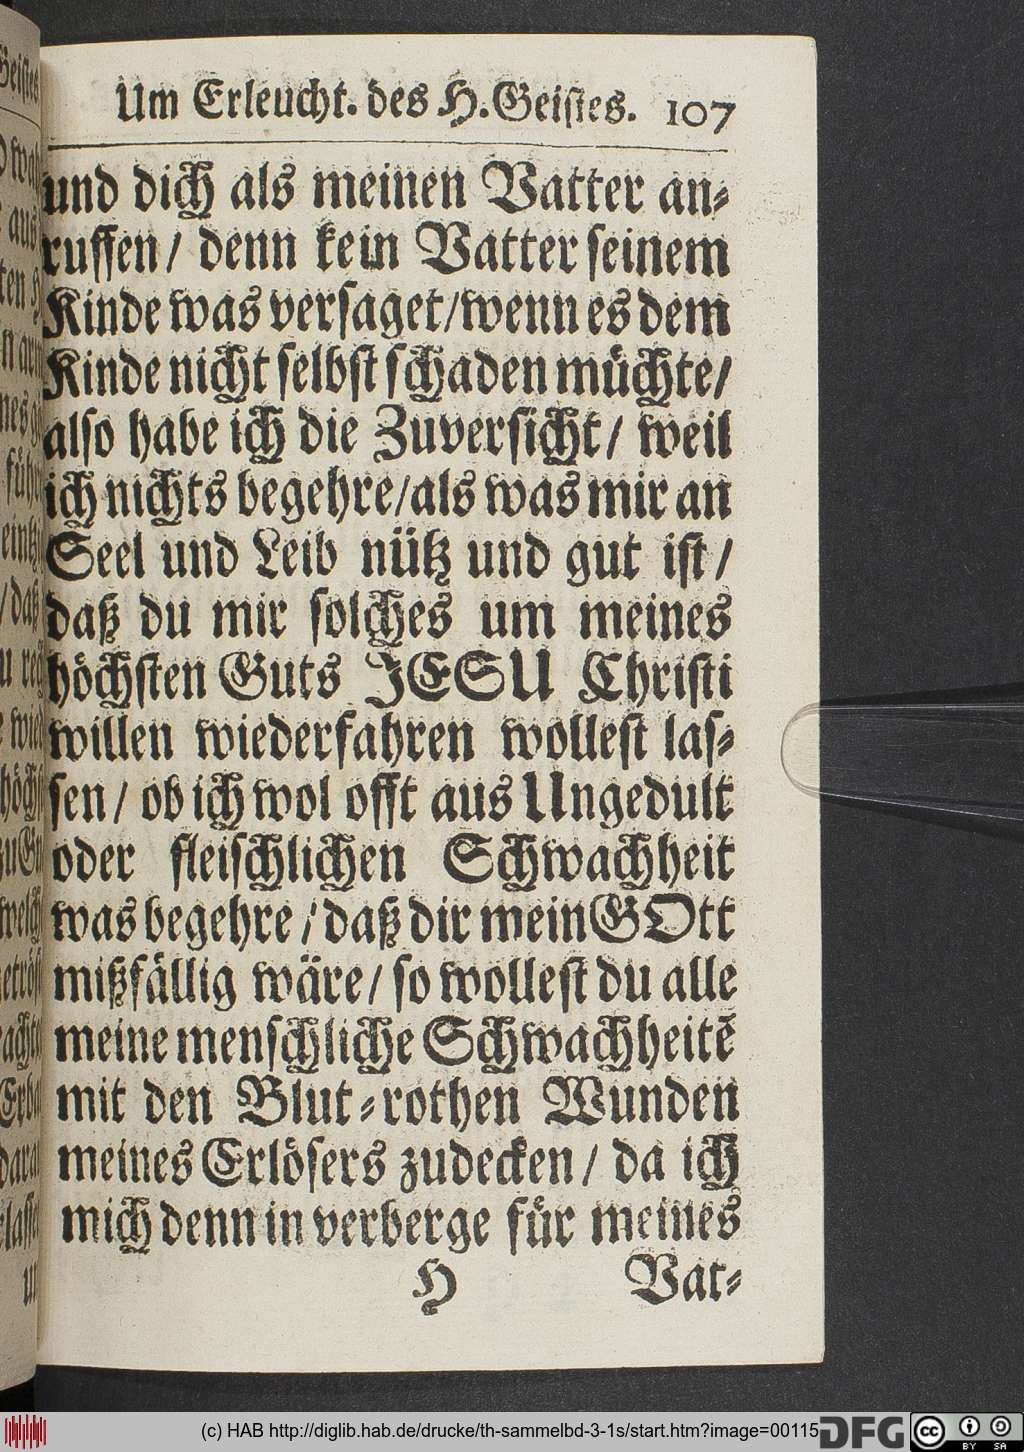 Um Erleucht. des H. Geistes. 107
und dich als meinen Vatter an-
ruffen / denn kein Vatter seinem
Kinde was versaget / wenn es dem
Kinde nicht selbst schaden müchte /
also habe ich die Zuversicht / weil
ich nichts begehre / als was mir an
Seel und Leib nütz und gut ist /
daß du mir solches um meines
höchsten Guts JESU Christi
willen wiederfahren wollest las-
sen / ob ich wol offt aus Ungedult
oder fleischlichen Schwachheit
was begehre / daß dir mein GOtt
mißfällig wäre / so wollest du alle
meine menschliche Schwachheitẽ
mit den Blut-rothen Wunden
meines Erlösers zudecken / da ich
mich denn in verberge für meines
H Vat-
(c) HAB http://diglib.hab.de/drucke/th-sammelbd-3-1s/start.htm?image=00115
DFG
cc BY SA